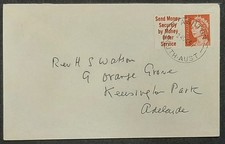 Send Money
Securely
by Money
Order
Service
TH AUST
Rev H S Watson
9 Orange Grove
Kensington Park
Adelaide